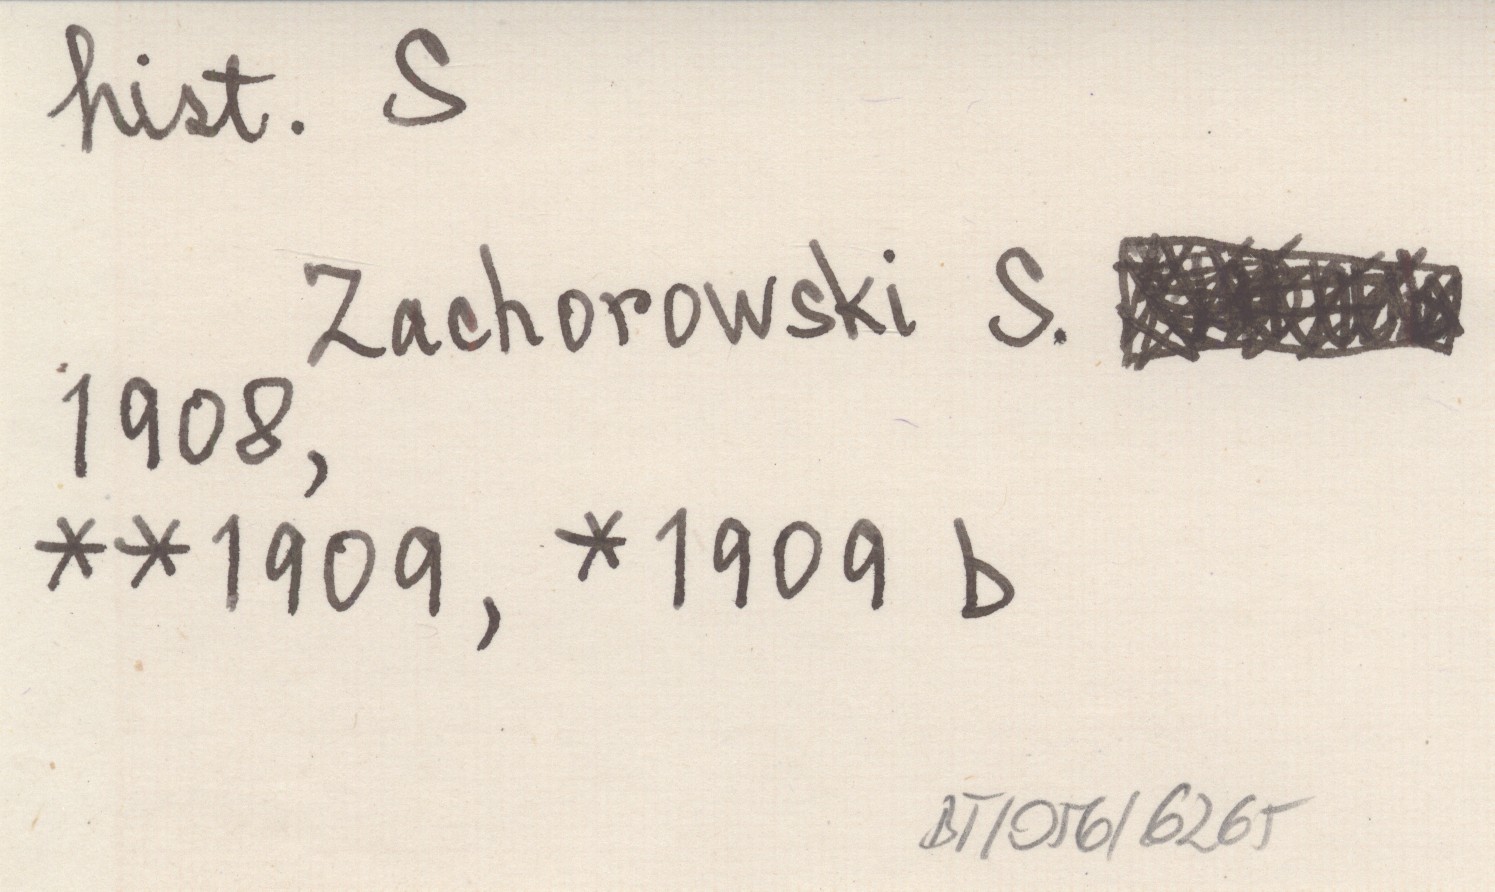 hist. S
Zachorowski S.
1908,
**1909, *1909 b
BT/056/6265